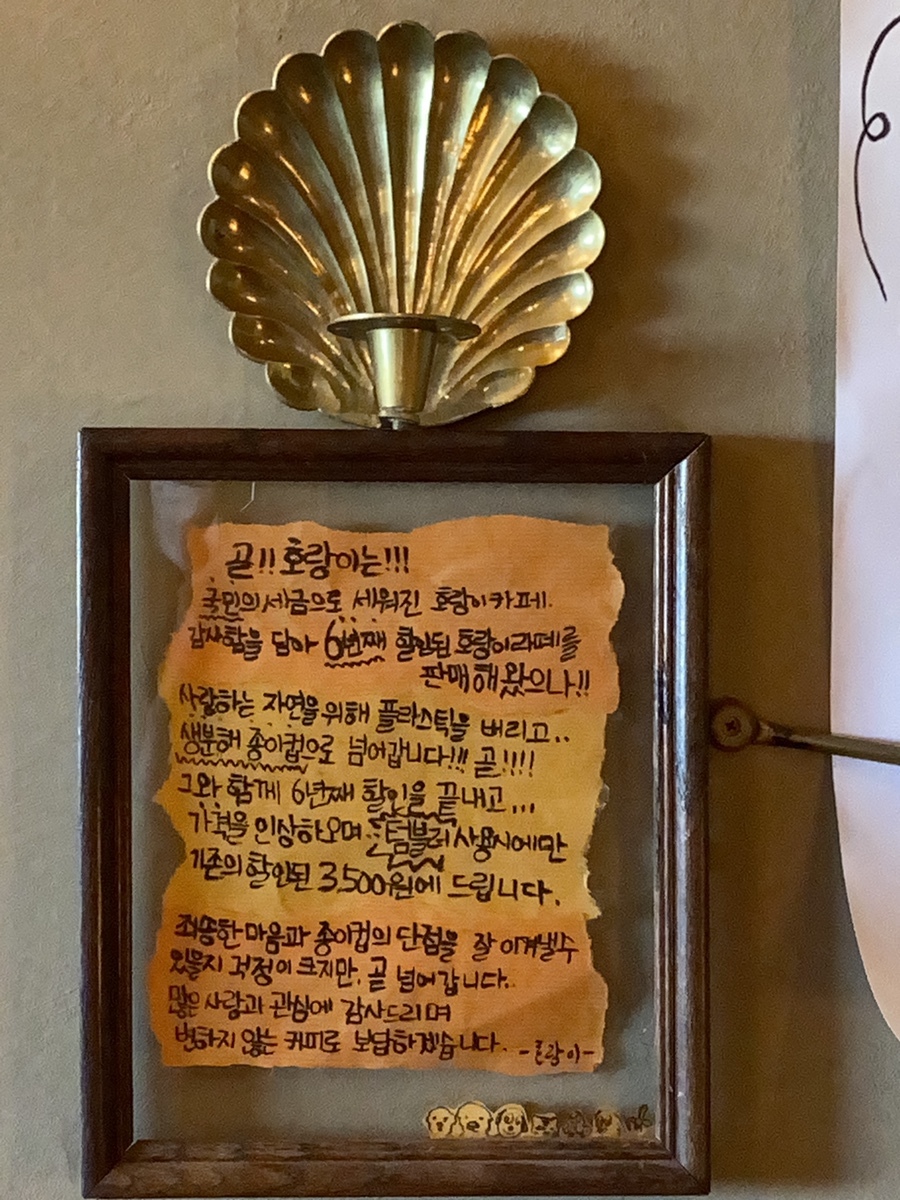 곧!! 호랑이는!!!
국민의 세금으로 세워진 호랑이카페.
감사함을 담아 6년째 할인된 호랑이라떼를
판매해왔으나!!
사랑하는 자연을 위해 플라스틱을 버리고..
생분해 종이컵으로 넘어갑니다!!! 곧!!!!
그와 함께 6년째 할인을 끝내고...
가격을 인상하오며 텀블러 사용시에만
기존의 할인된 3,500원에 드립니다.
죄송한 마음과 종이컵의 단점을 잘 이겨낼수
있을지 걱정이 크지만, 곧 넘어갑니다..
많은 사랑과 관심에 감사드리며
변하지 않는 커피로 보답하겠습니다.
-호랑이-